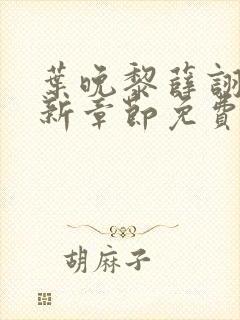 葉晚黎薛詡
新章節免費
胡麻子